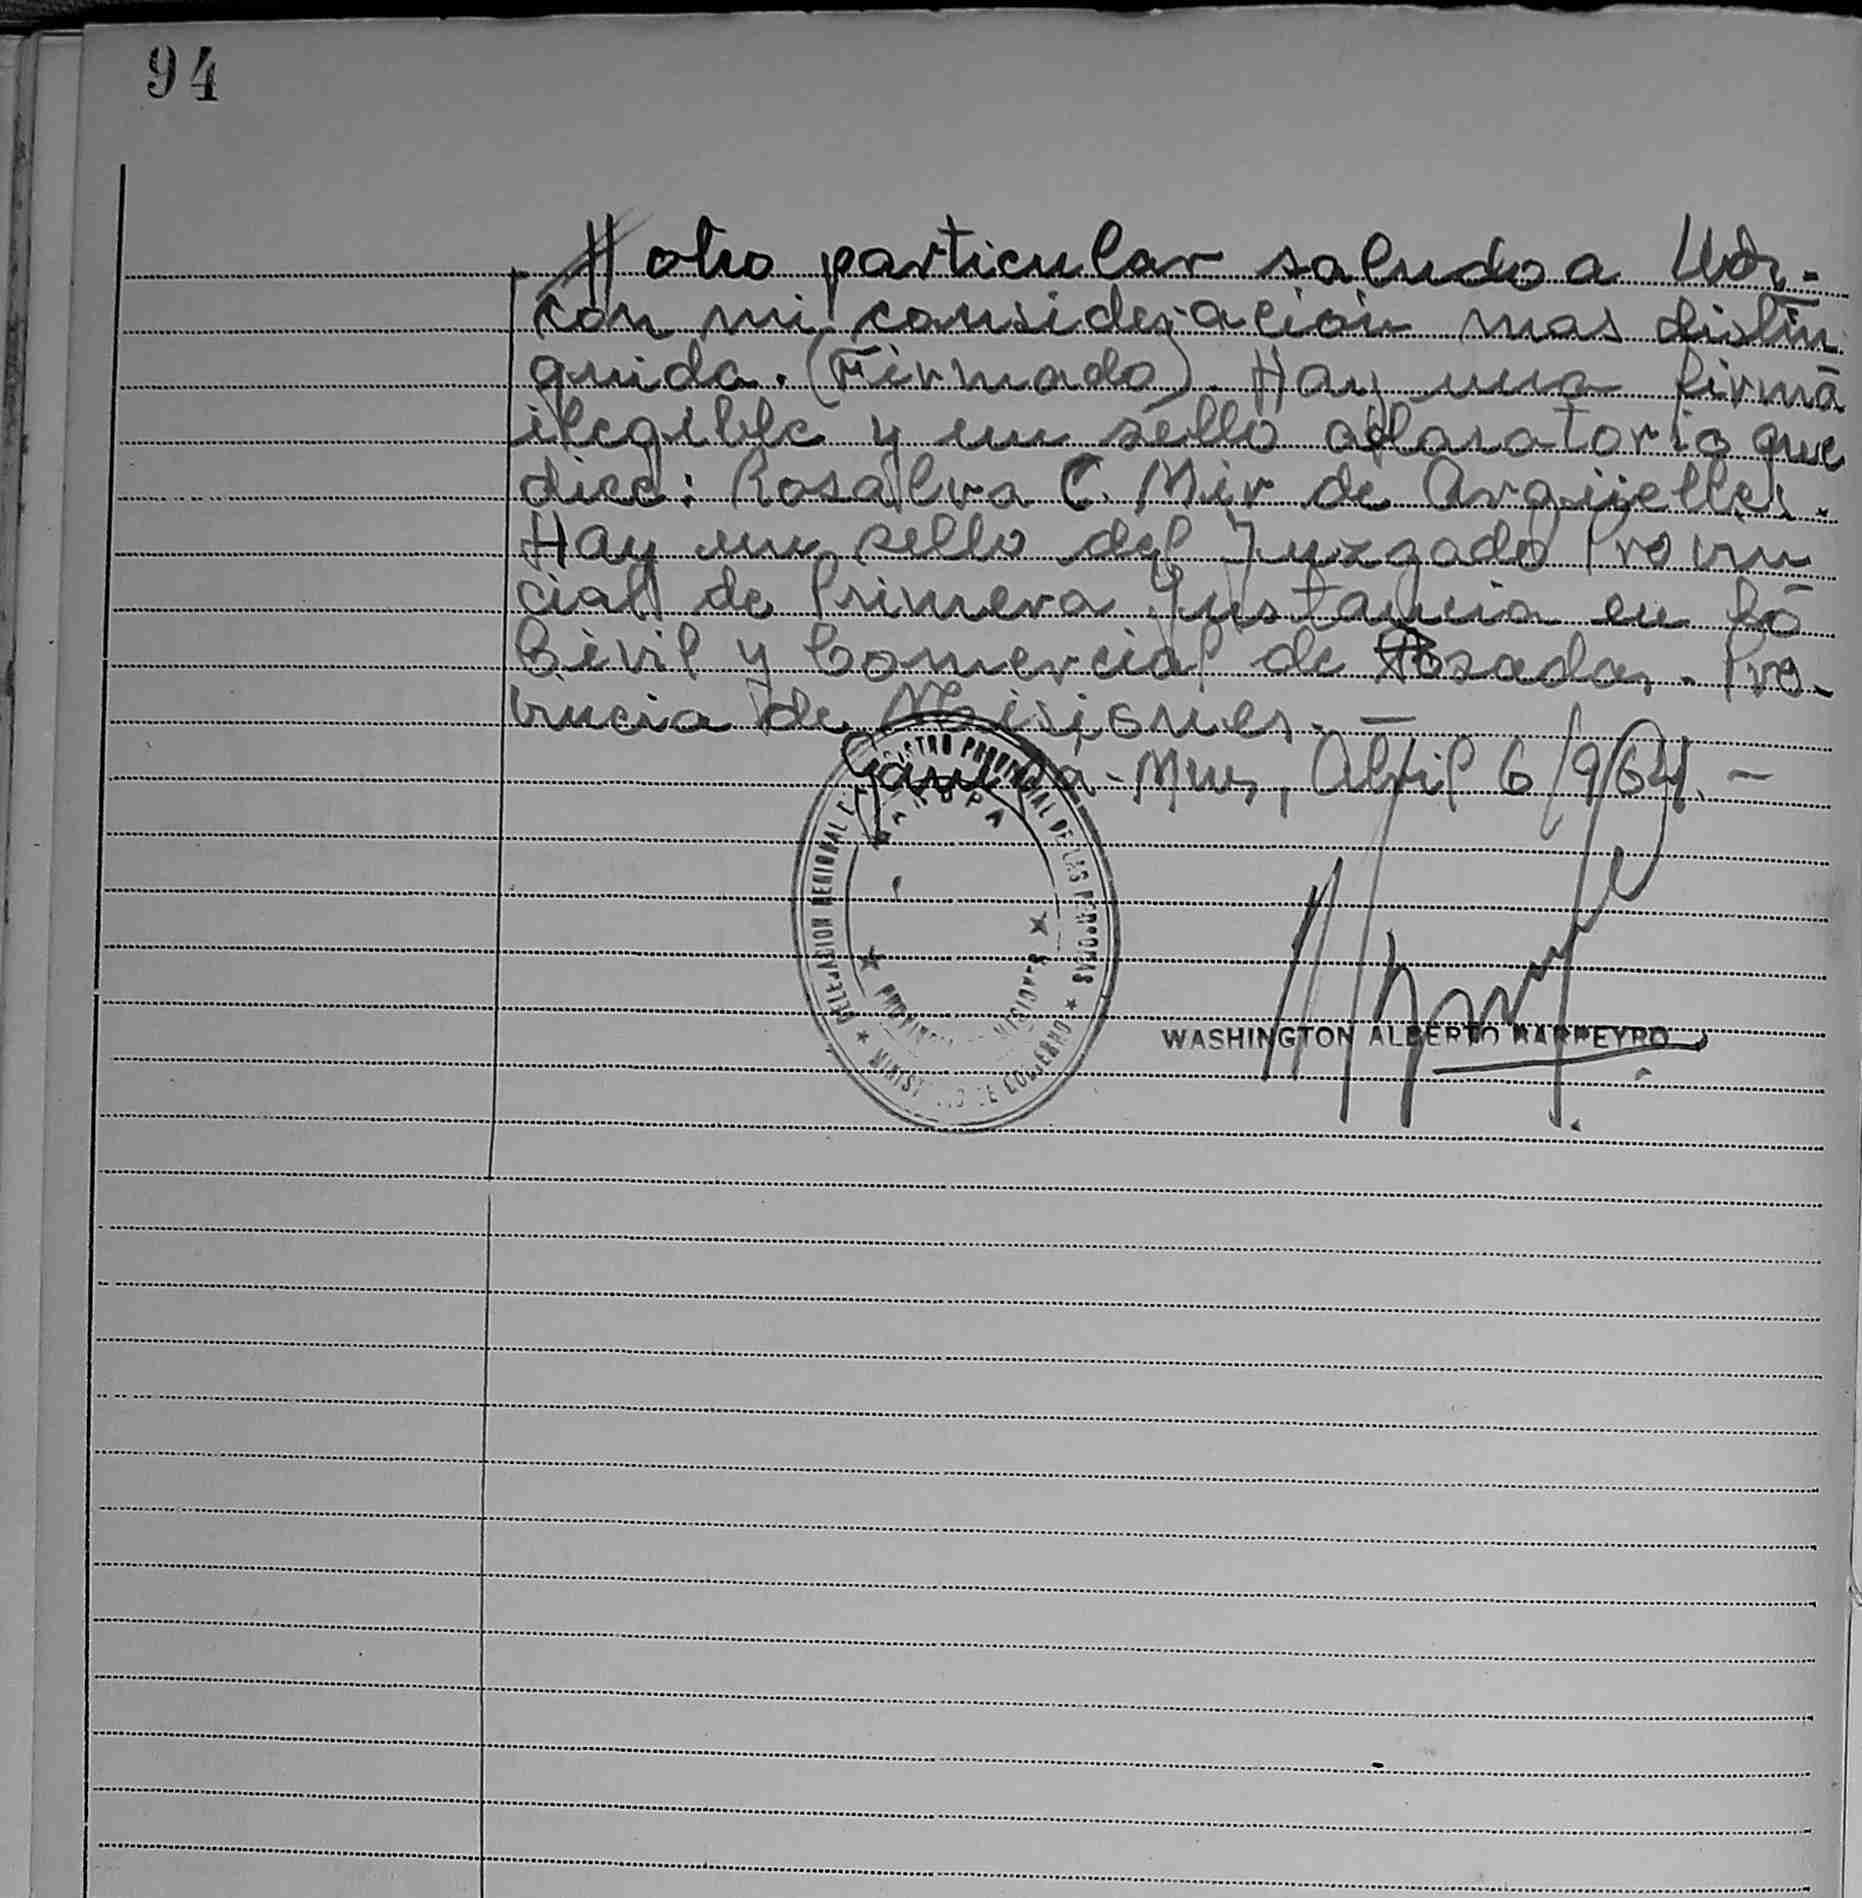 94
otro particular saludo a Uds.-
con mi consideración mas distin
guida. (Firmado). Hay una firma
ilegible y un sello aclaratorio que
dice: Rosalva C. Mir de Argüelles.
Hay un sello del Juzgado Provin
cial de Primera Instancia en lo
Civil y Comercial de Posadas. Pro-
vincia de Misiones. —
Garupá - Mnes, Abril 6/964. —
DELEGACION REGIONAL REGISTRO PROVINCIAL DE LAS PERSONAS
GARUPA
PROVINCIA DE MISIONES
MINISTERIO DE GOBIERNO
WASHINGTON ALBERTO